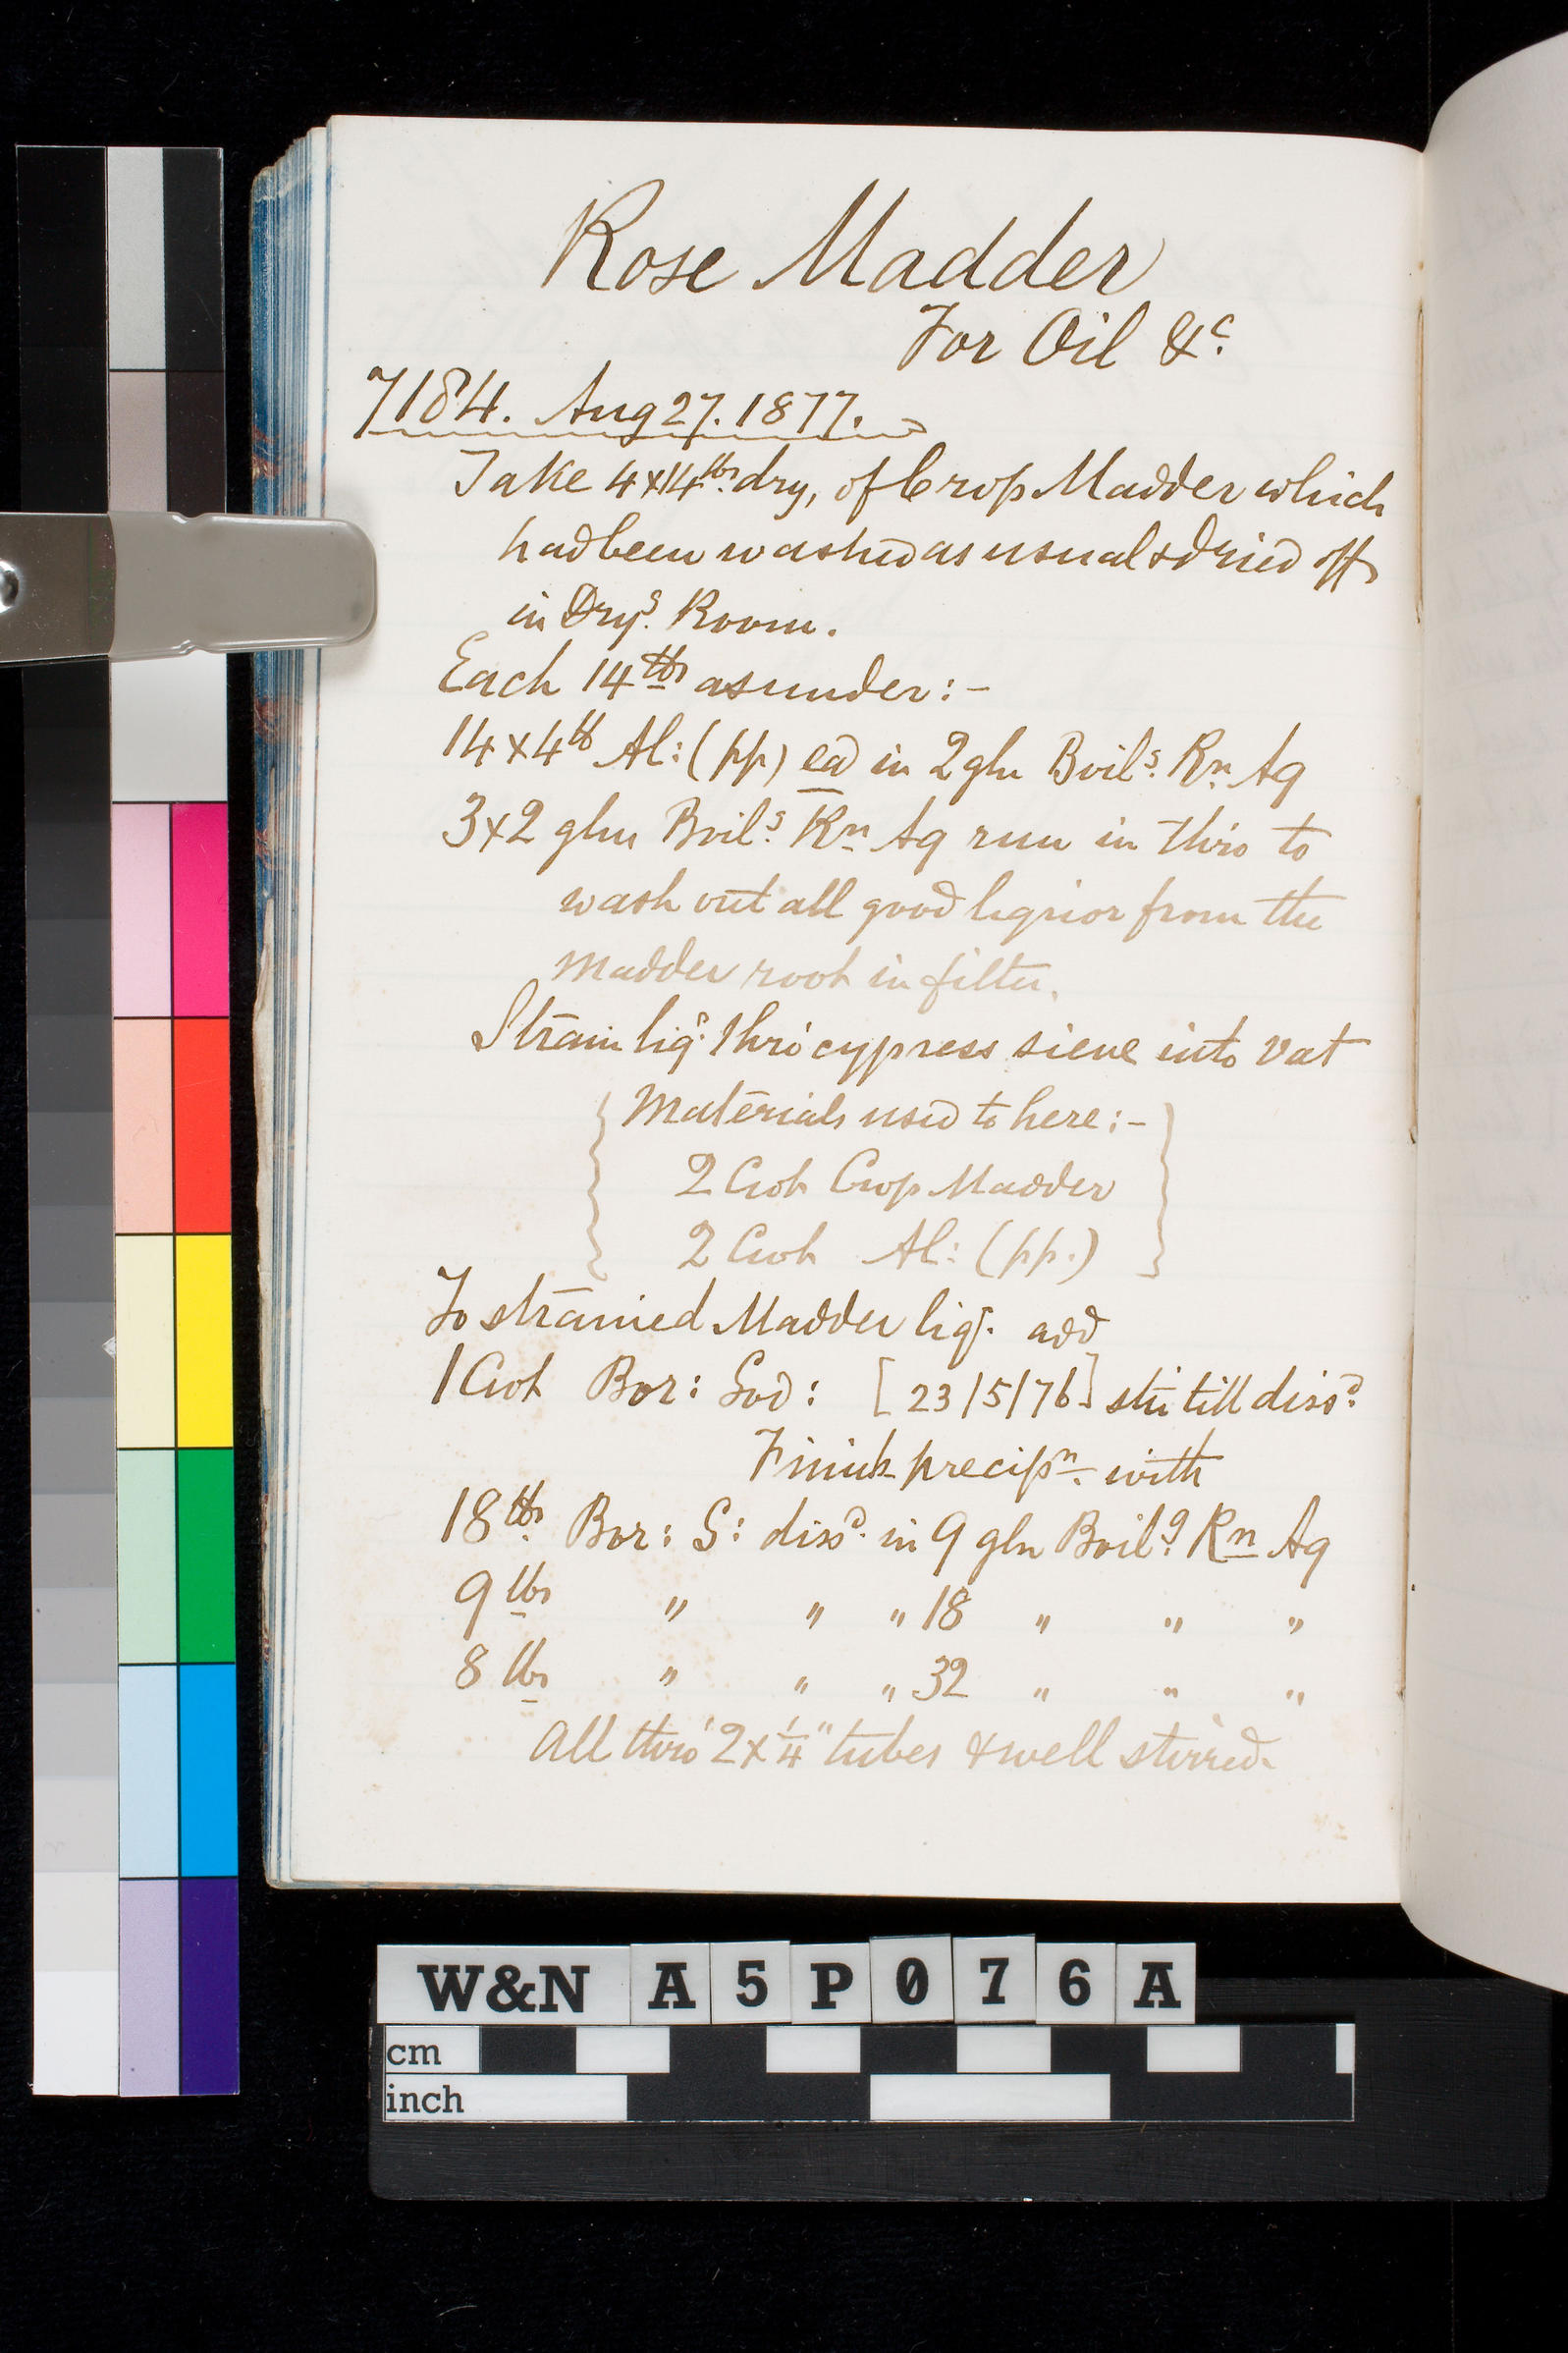 Rose Madder
For Oil &c.
7184. Aug 27. 1877.
Take 4x14lbs. dry, of Crop Madder which
had been washed as usual & dried off
in Dryg. Room.
Each 14lbs as under:-
14x4lb Al: (pp) ea in 2 gln Boilg. Rn. Aq
3x2 glns Boilg. Rn Aq run in thro to
wash out all good liquor from the
madder root in filter.
Strain liqr. thro' cypress sieve into vat
Materials used to here:-
2 Cwt Crop Madder
2 Cwt Al: (pp.)
To strained Madder liqr. add
1 Cwt Bor: Sod: [23/5/76] stir till dissd.
Finish precipn. with
18lbs. Bor: S: dissd. in 9 gln Boilg. Rn Aq
9 lbs " " " 18 " " "
8 lbs " " " 32 " " "
All thro' 2x1/4" tubes & well stirred
W&N A5P076A
cm
inch